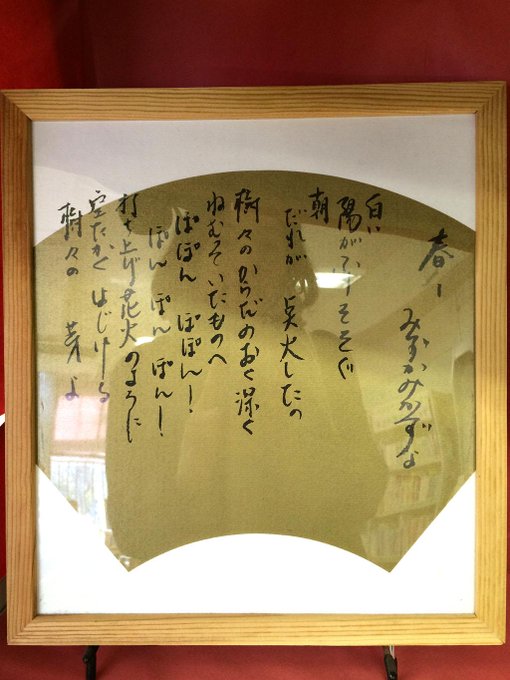 春 みずかみかずよ
白い
陽がふりそそぐ
朝
だれが 点火したの
樹々のからだのおく深く
ねむっていたものへ
ぽぽん ぽぽん!
ぽん ぽん ぽん!
打ち上げ花火のように
空たかく はじける
樹々の 芽よ